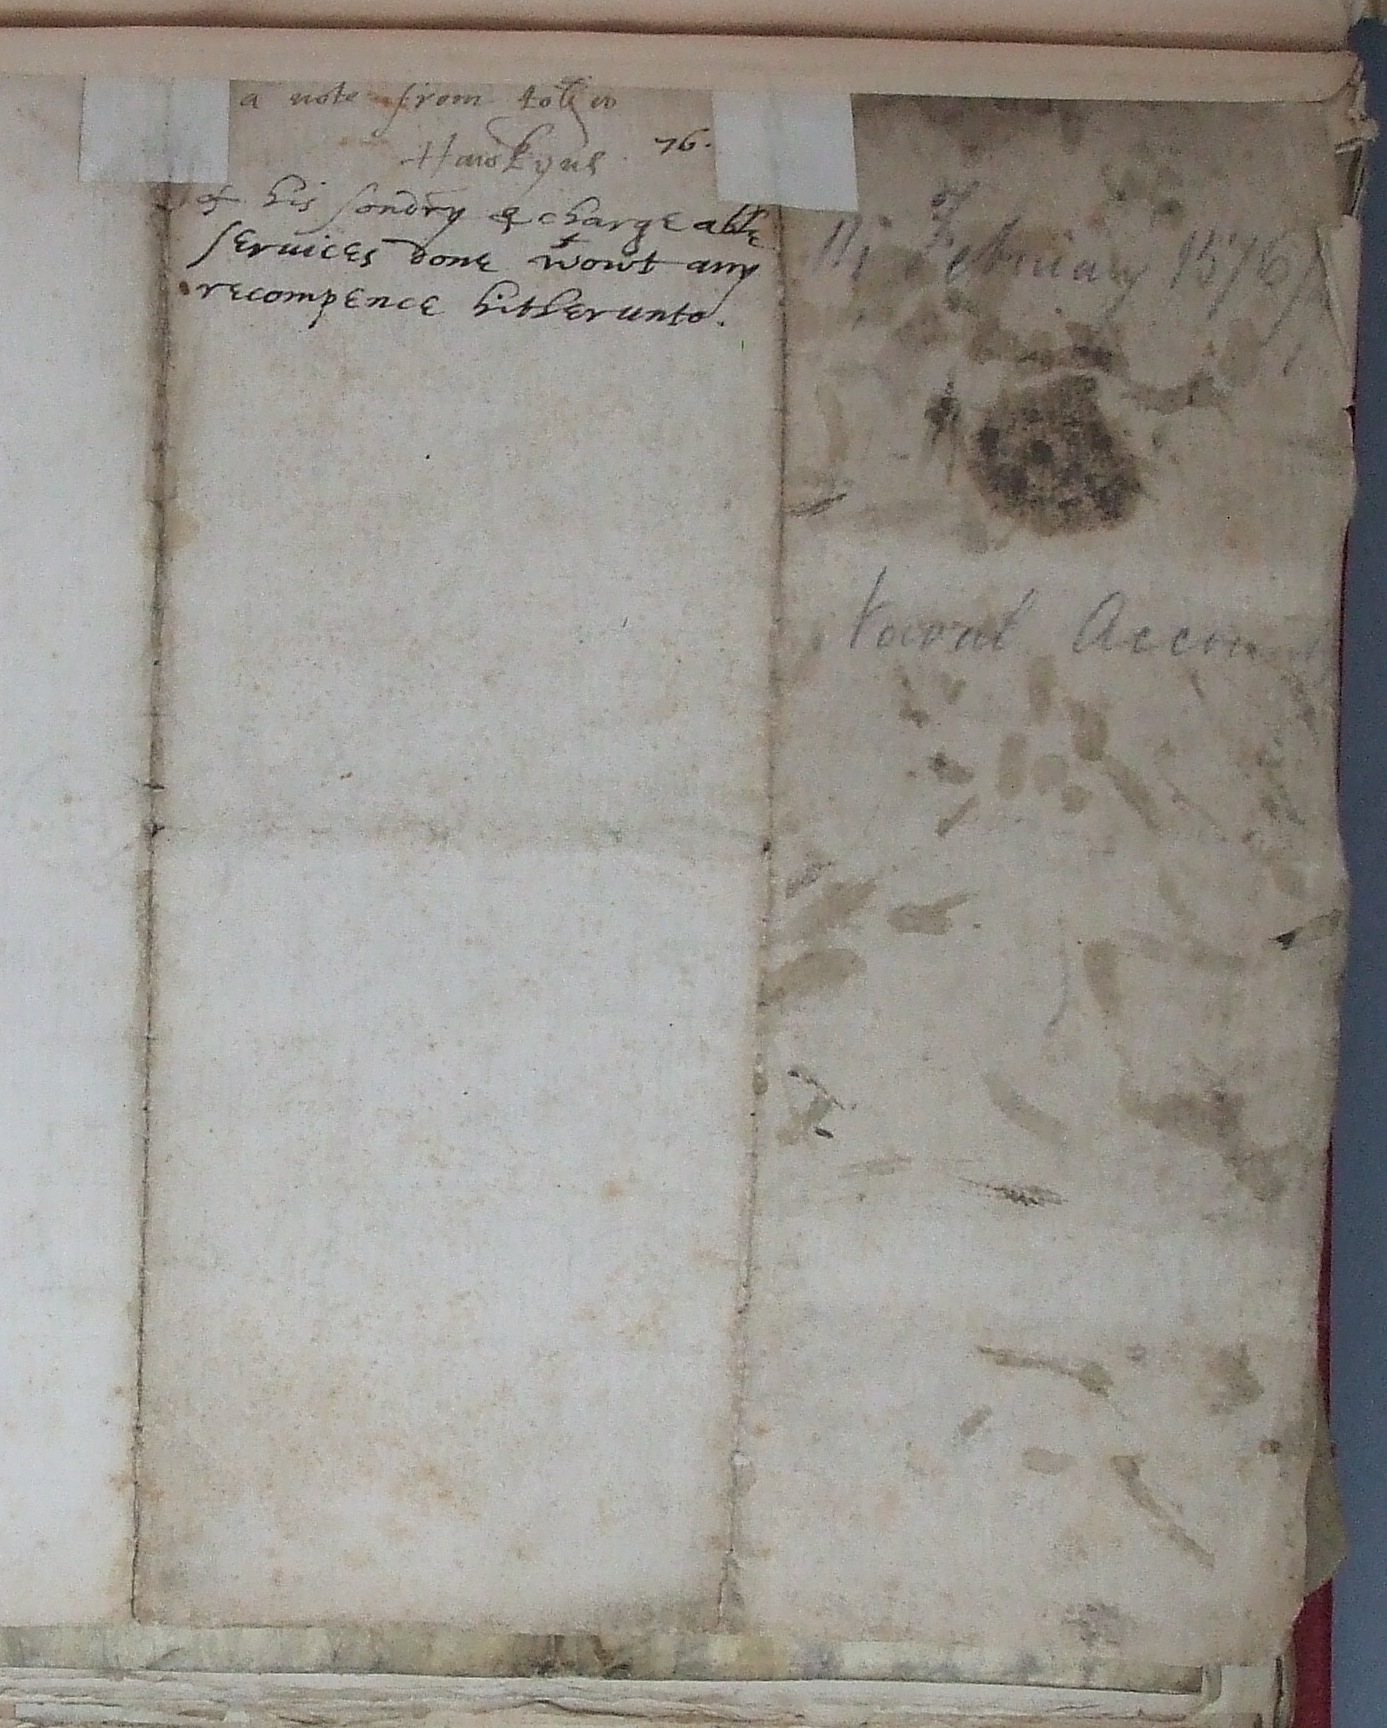 a note from
Hawkyns 76.
of his sondry & chargeable
seruices done wtowt any
recompence hitherunto.
of
February 1576